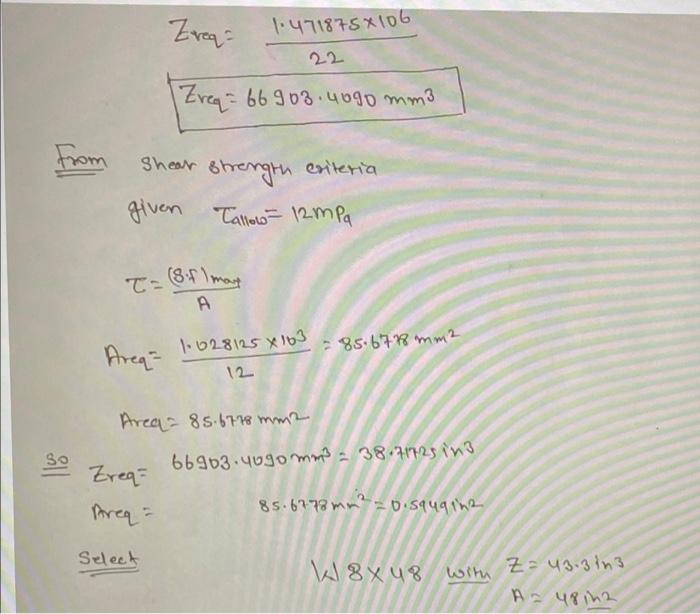 Zreq = 1.471875×106
22
Zreq = 66903.4090 mm3
From shear strength criteria
given τallow = 12mPa
τ = (S.F)max
A
Areq = 1.028125×103 = 85.6778 mm2
12
Area = 85.6778 mm2
So
Zreq = 66903.4090 mm3 = 38.71725 in3
Areq = 85.6778 mm2 = 0.5949in2
Select W8×48 with Z = 43.3in3
A = 48in2